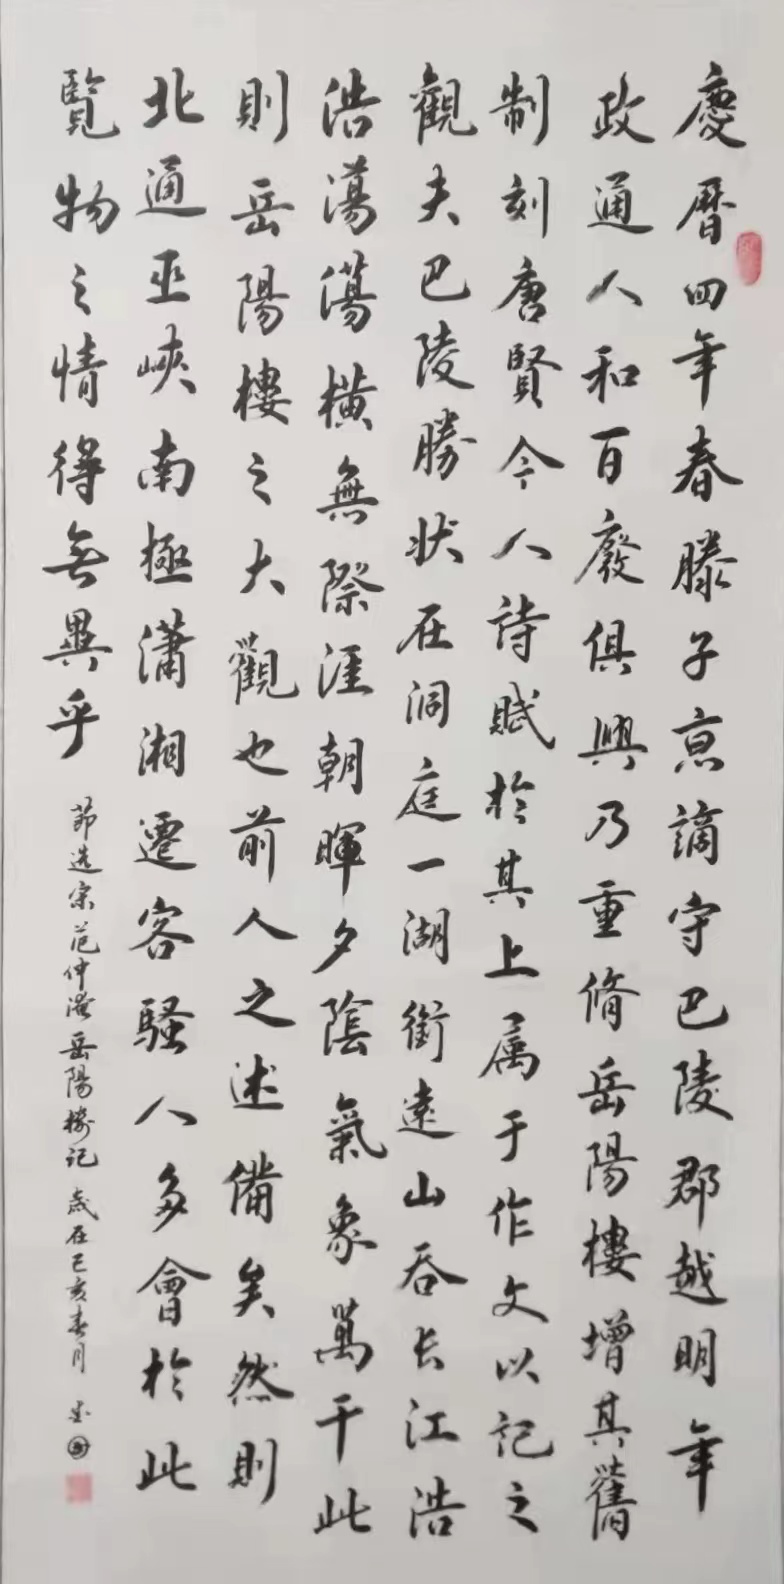 慶曆四年春滕子京謫守巴陵郡越明年
政通人和百廢俱興乃重脩岳陽樓增其舊
制刻唐賢今人詩賦於其上属于作文以記之
觀夫巴陵勝状在洞庭一湖銜遠山吞长江浩
浩蕩蕩橫無際涯朝暉夕陰氣象萬千此
則岳陽樓之大觀也前人之述備矣然則
北通巫峽南極瀟湘遷客騷人多會於此
覽物之情得無異乎
節選宋范仲淹岳陽樓記 歲在己亥春月